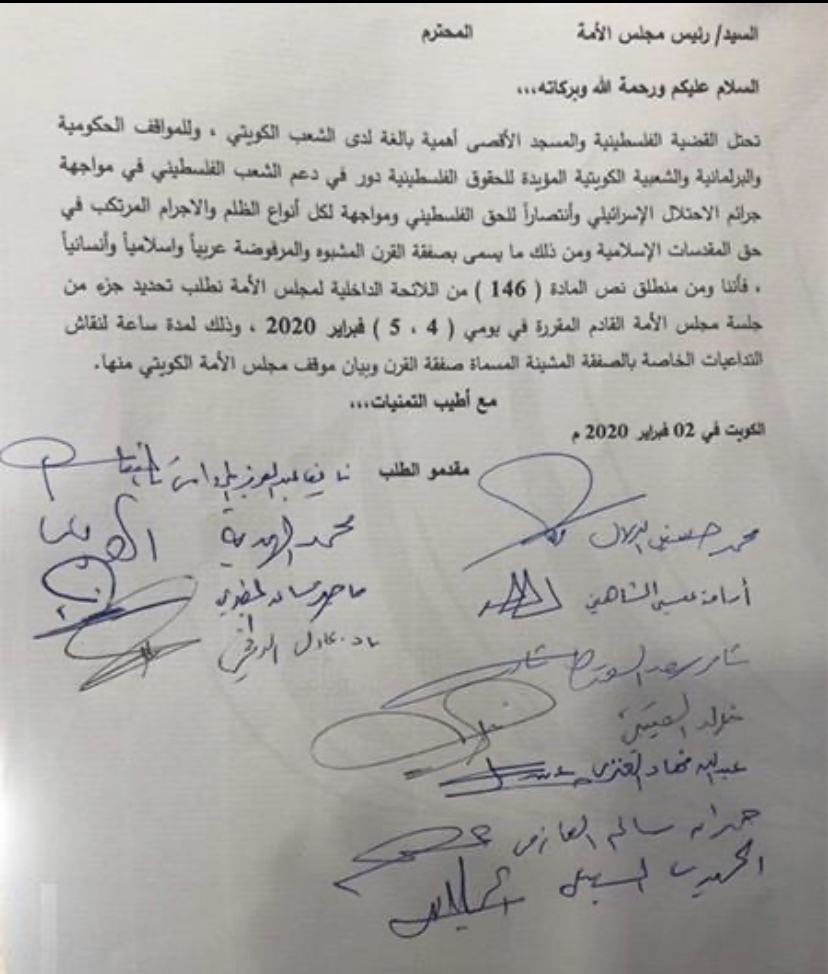 السيد/ رئيس مجلس الأمة المحترم
السلام عليكم ورحمة الله وبركاته،،،
تحتل القضية الفلسطينية والمسجد الأقصى أهمية بالغة لدى الشعب الكويتي ، وللمواقف الحكومية
والبرلمانية والشعبية الكويتية المؤيدة للحقوق الفلسطينية دور في دعم الشعب الفلسطيني في مواجهة
جرائم الاحتلال الإسرائيلي وأنتصاراً للحق الفلسطيني ومواجهة لكل أنواع الظلم والاجرام المرتكب في
حق المقدسات الإسلامية ومن ذلك ما يسمى بصفقة القرن المشبوه والمرفوضة عربياً واسلامياً وأنسانياً
، فأننا ومن منطلق نص المادة ( 146 ) من اللائحة الداخلية لمجلس الأمة نطلب تحديد جزء من
جلسة مجلس الأمة القادم المقررة في يومي ( 4 ، 5 ) فبراير 2020 ، وذلك لمدة ساعة لنقاش
التداعيات الخاصة بالصفقة المشينة المسماة صفقة القرن وبيان موقف مجلس الأمة الكويتي منها.
مع أطيب التمنيات،،،
الكويت في 02 فبراير 2020 م
مقدمو الطلب
محمد حسين الدلال
أسامة عيسى الشاهين
خالد العتيبي
عبدالله فهاد العنزي
حمدان سالم العازمي
الحميدي السبيعي
نايف عبدالعزيز
محمد الهدية
ماجد مساعد المطيري
عادل الدمخي